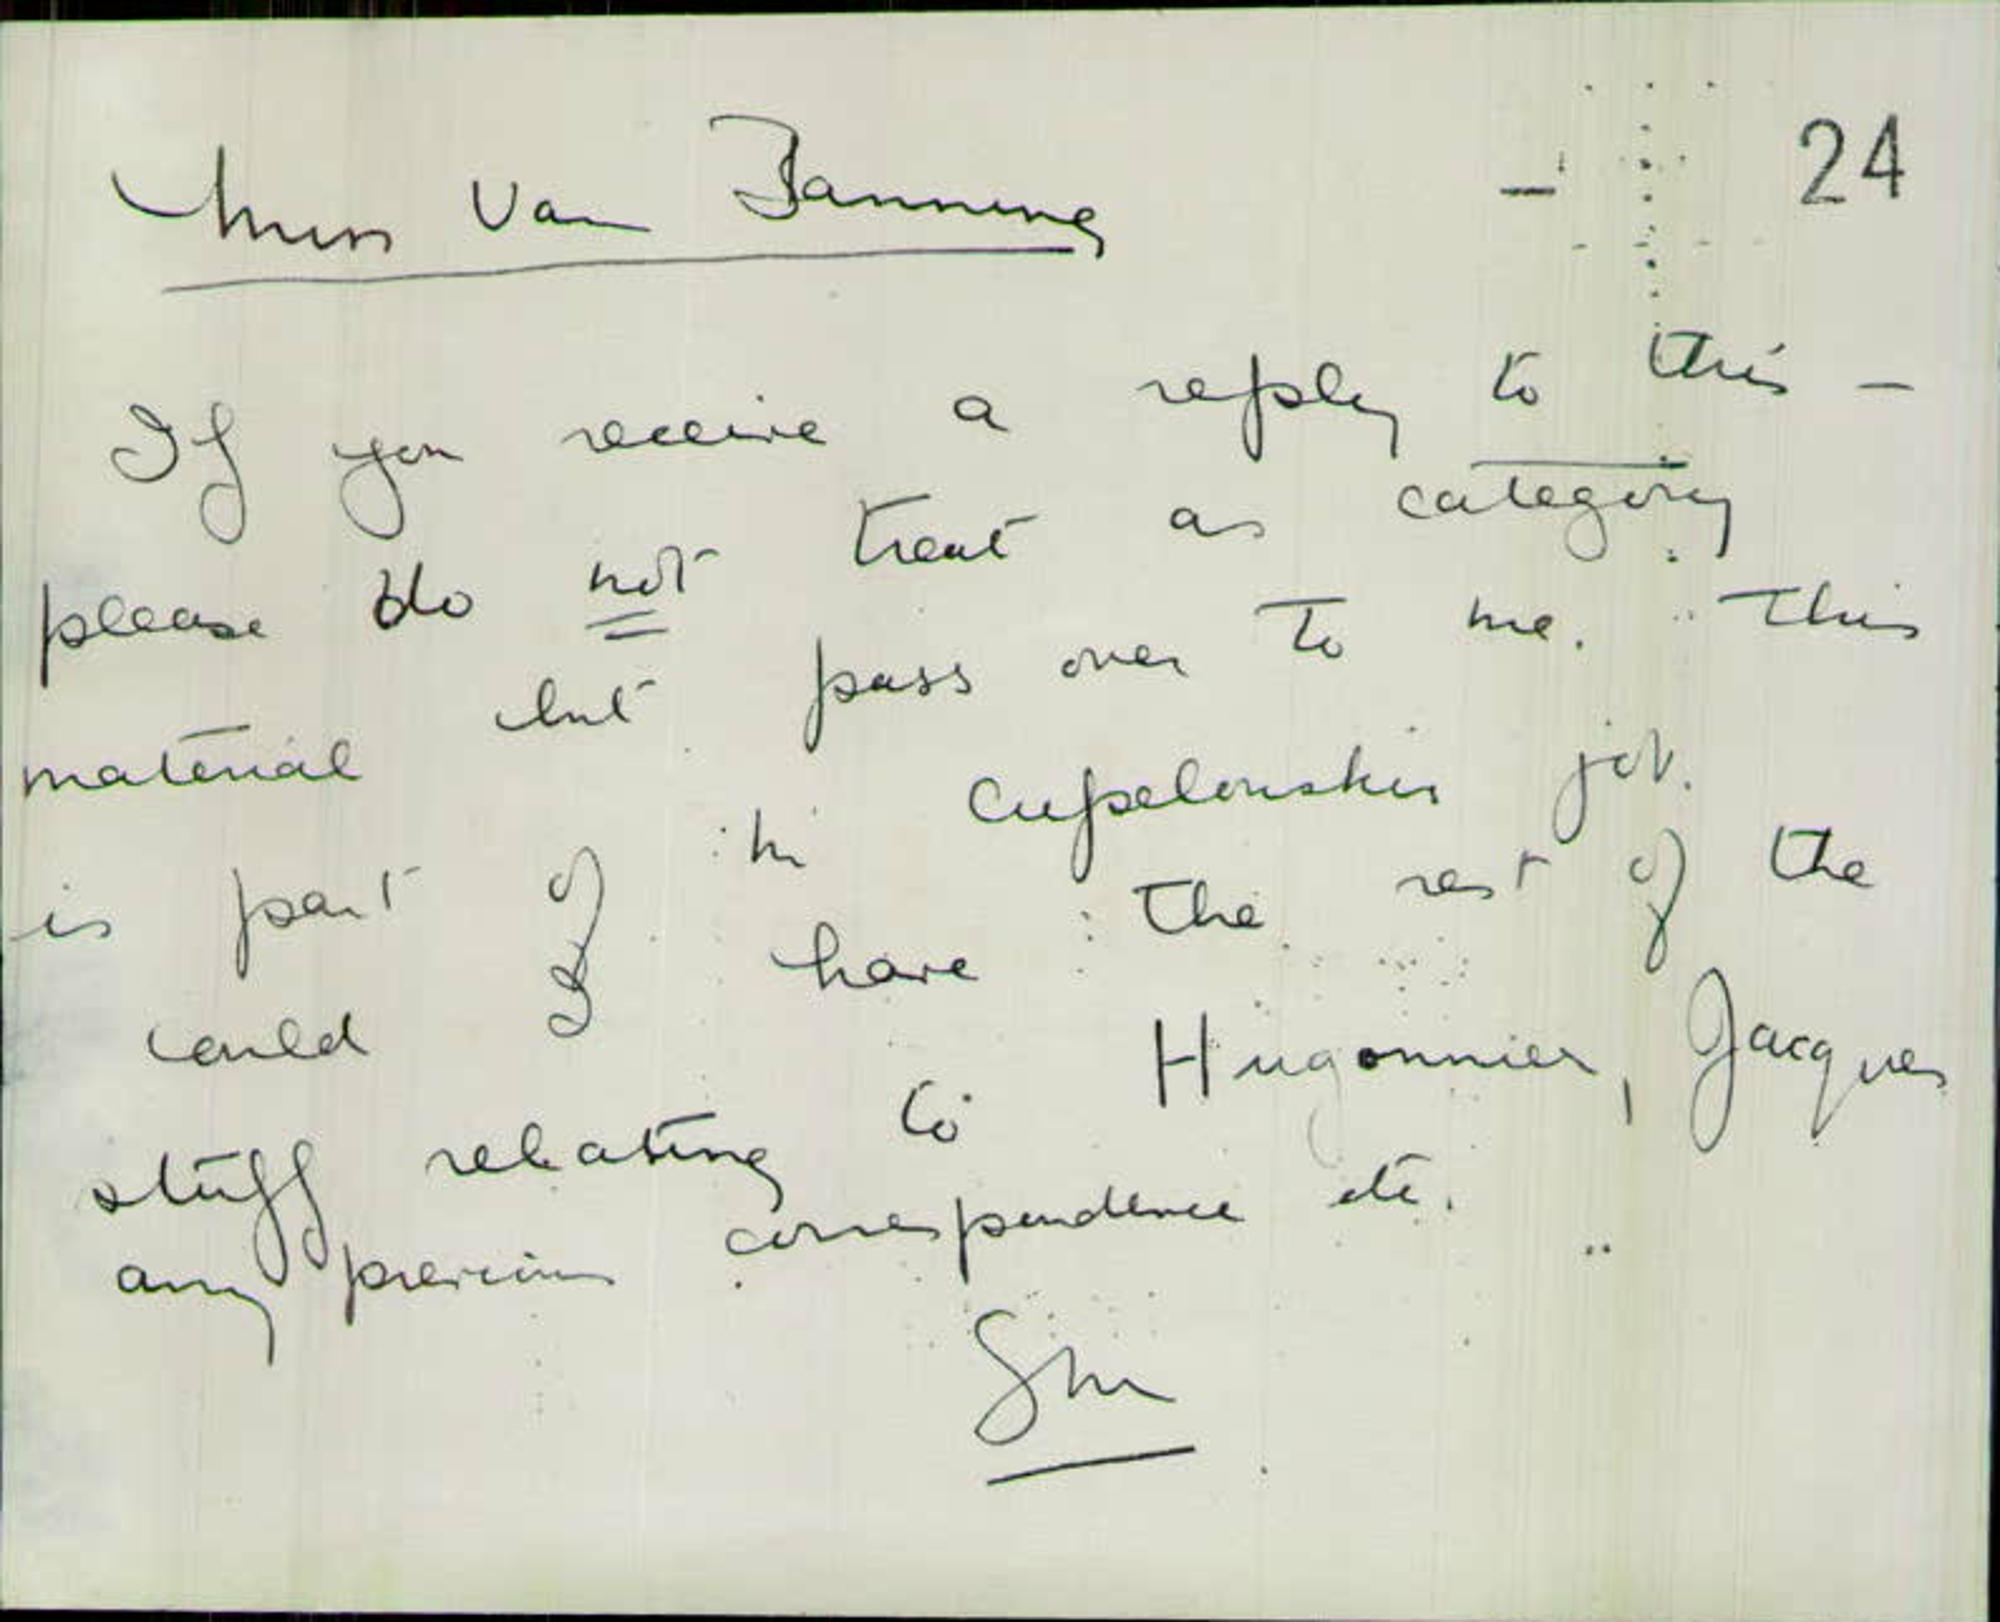 24
Miss Van Banning
If you receive a reply to this —
please do not treat as category
material but pass over to me. This
is part of the job.
Could I have the rest of the
stuff relating to Hugonnier, Jacques
any previous correspondence etc.